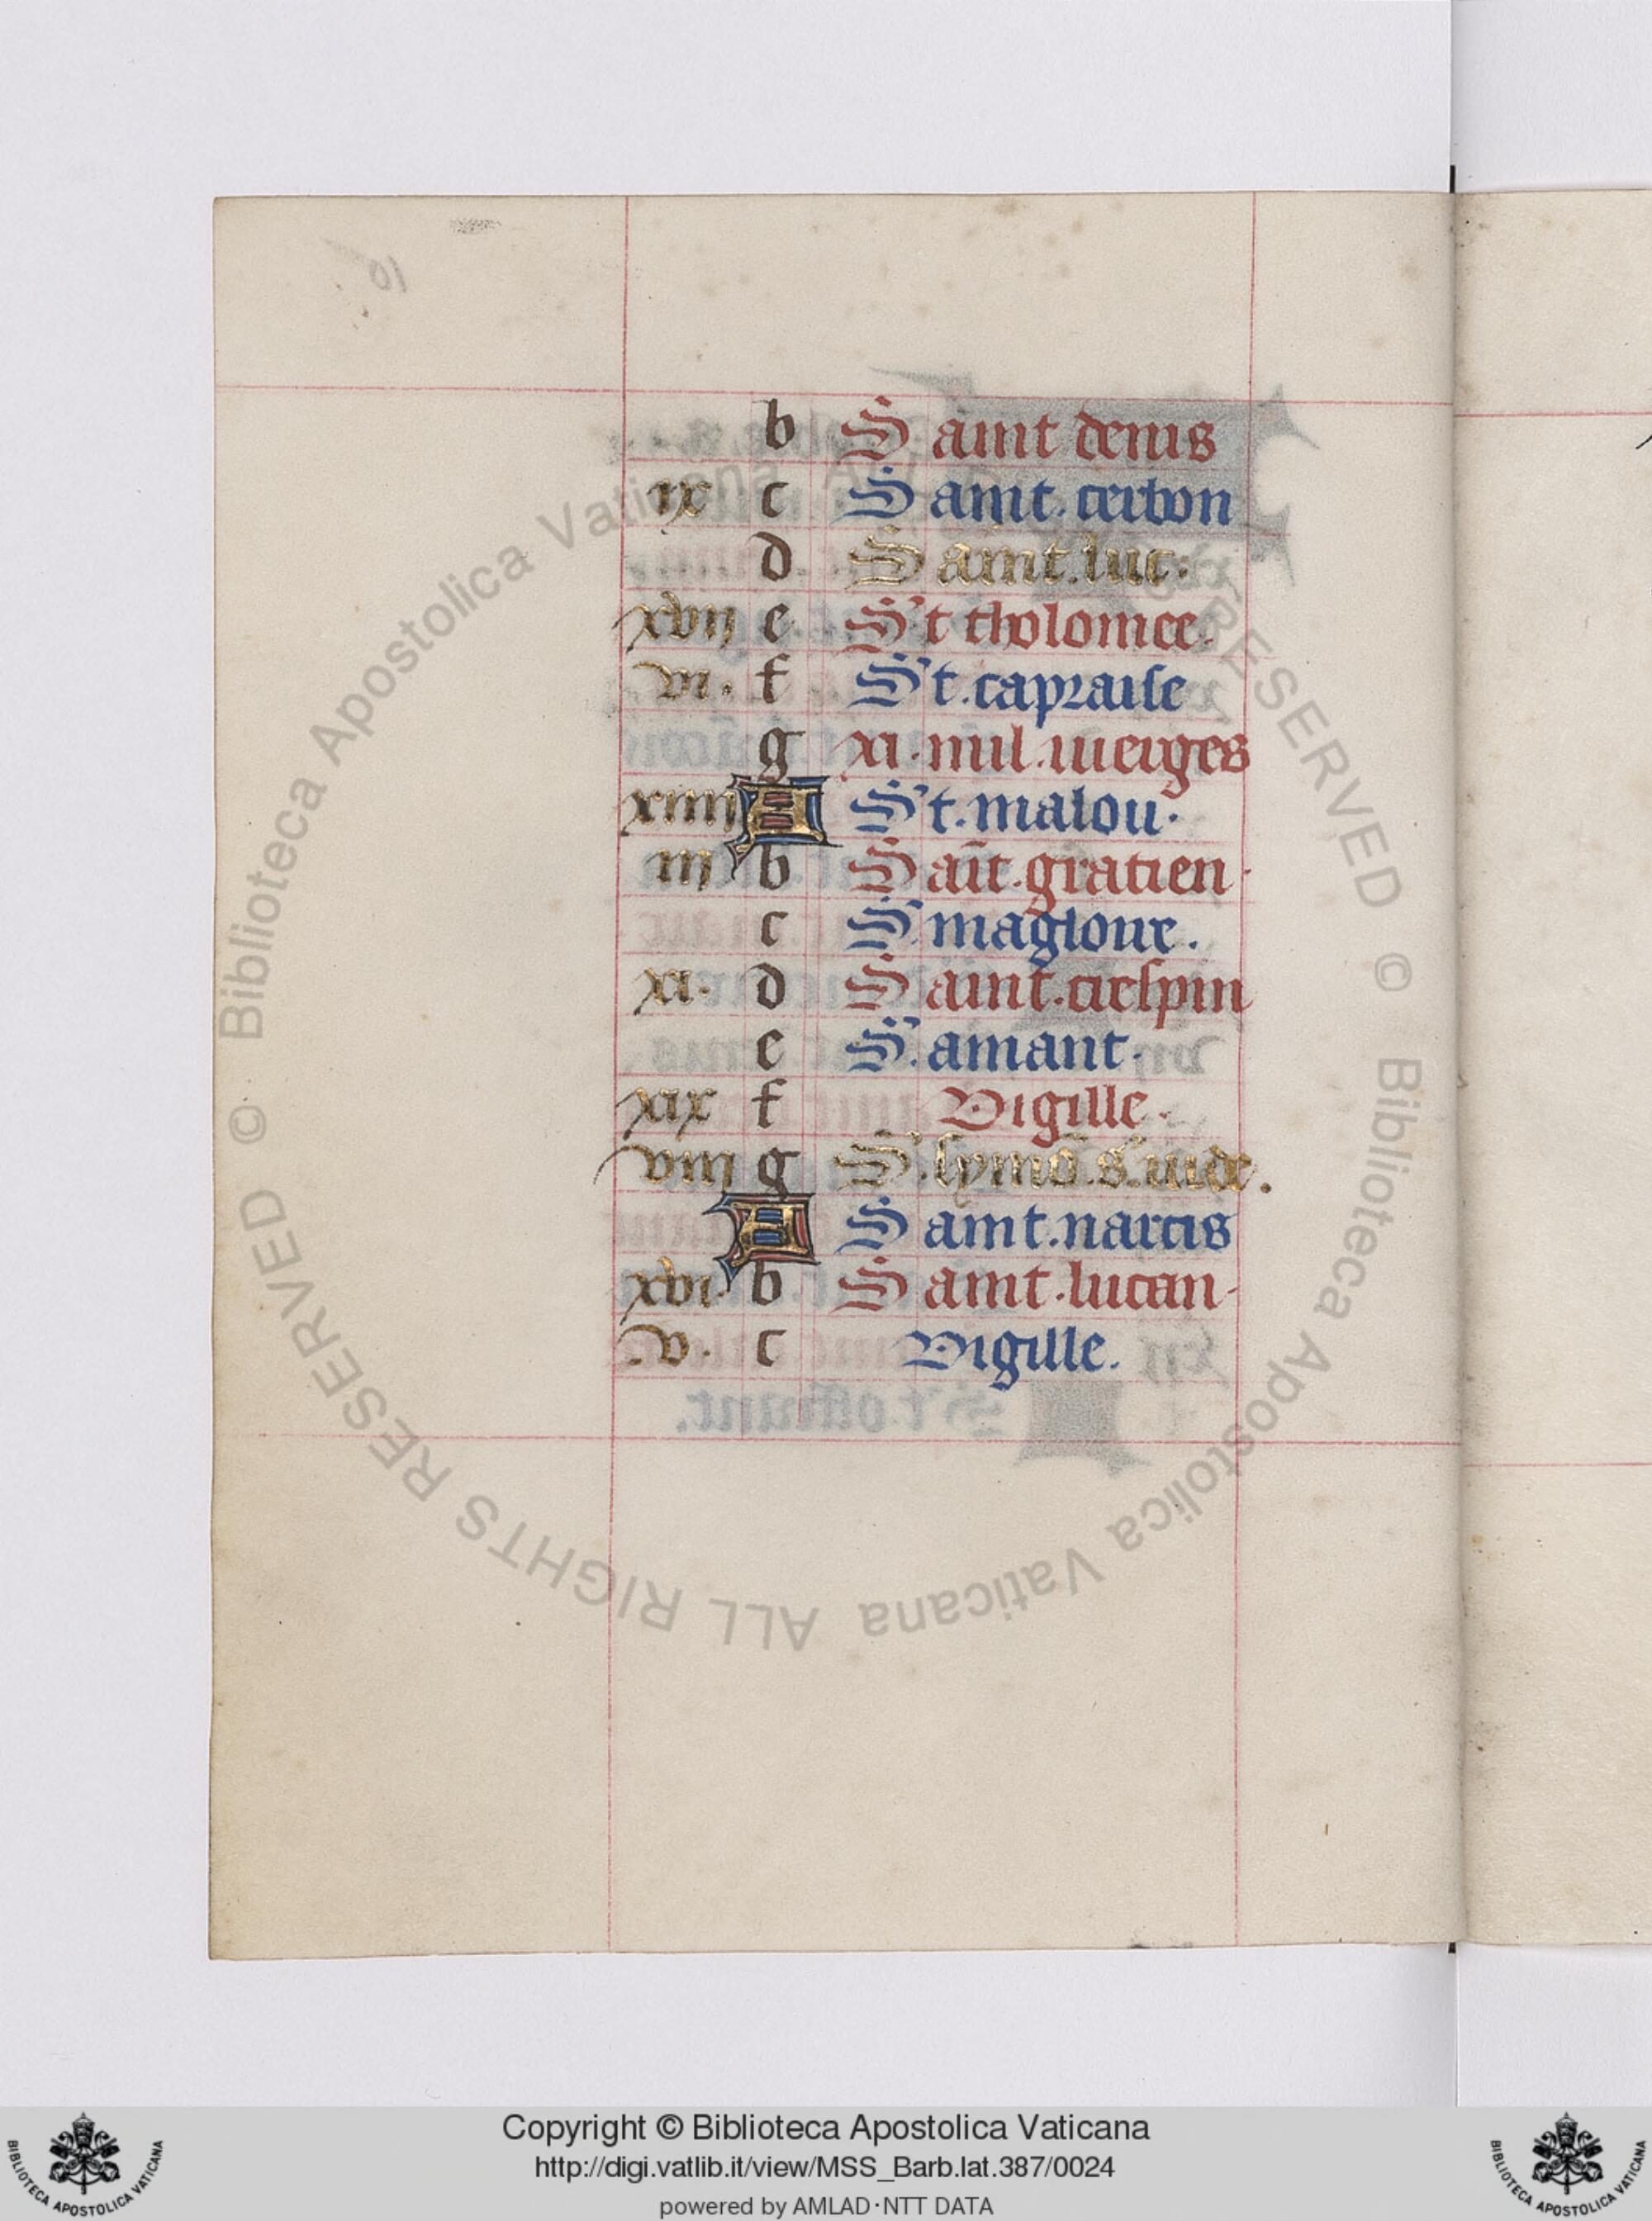 b Saint denis
ix c Saint. cerbon
d Saint. luc.
xvii e St tholomee.
vi. f St. capraise
g xi. mil. uierges
xiiii A St. malou.
iii b Sait. gratien.
c S. magloire.
xi. d Saint. crespin
e S. amant.
xix f Vigille.
viii g S. symō. s. iude.
A Saint. narcis
xvi. b Saint. lucan.
v. c Vigille.
© Biblioteca Apostolica Vaticana ALL RIGHTS RESERVED © Biblioteca Apostolica Vaticana ALL RIGHTS RESERVED
Copyright © Biblioteca Apostolica Vaticana
http://digi.vatlib.it/view/MSS_Barb.lat.387/0024
powered by AMLAD·NTT DATA
BIBLIOTECA APOSTOLICA VATICANA
BIBLIOTECA APOSTOLICA VATICANA